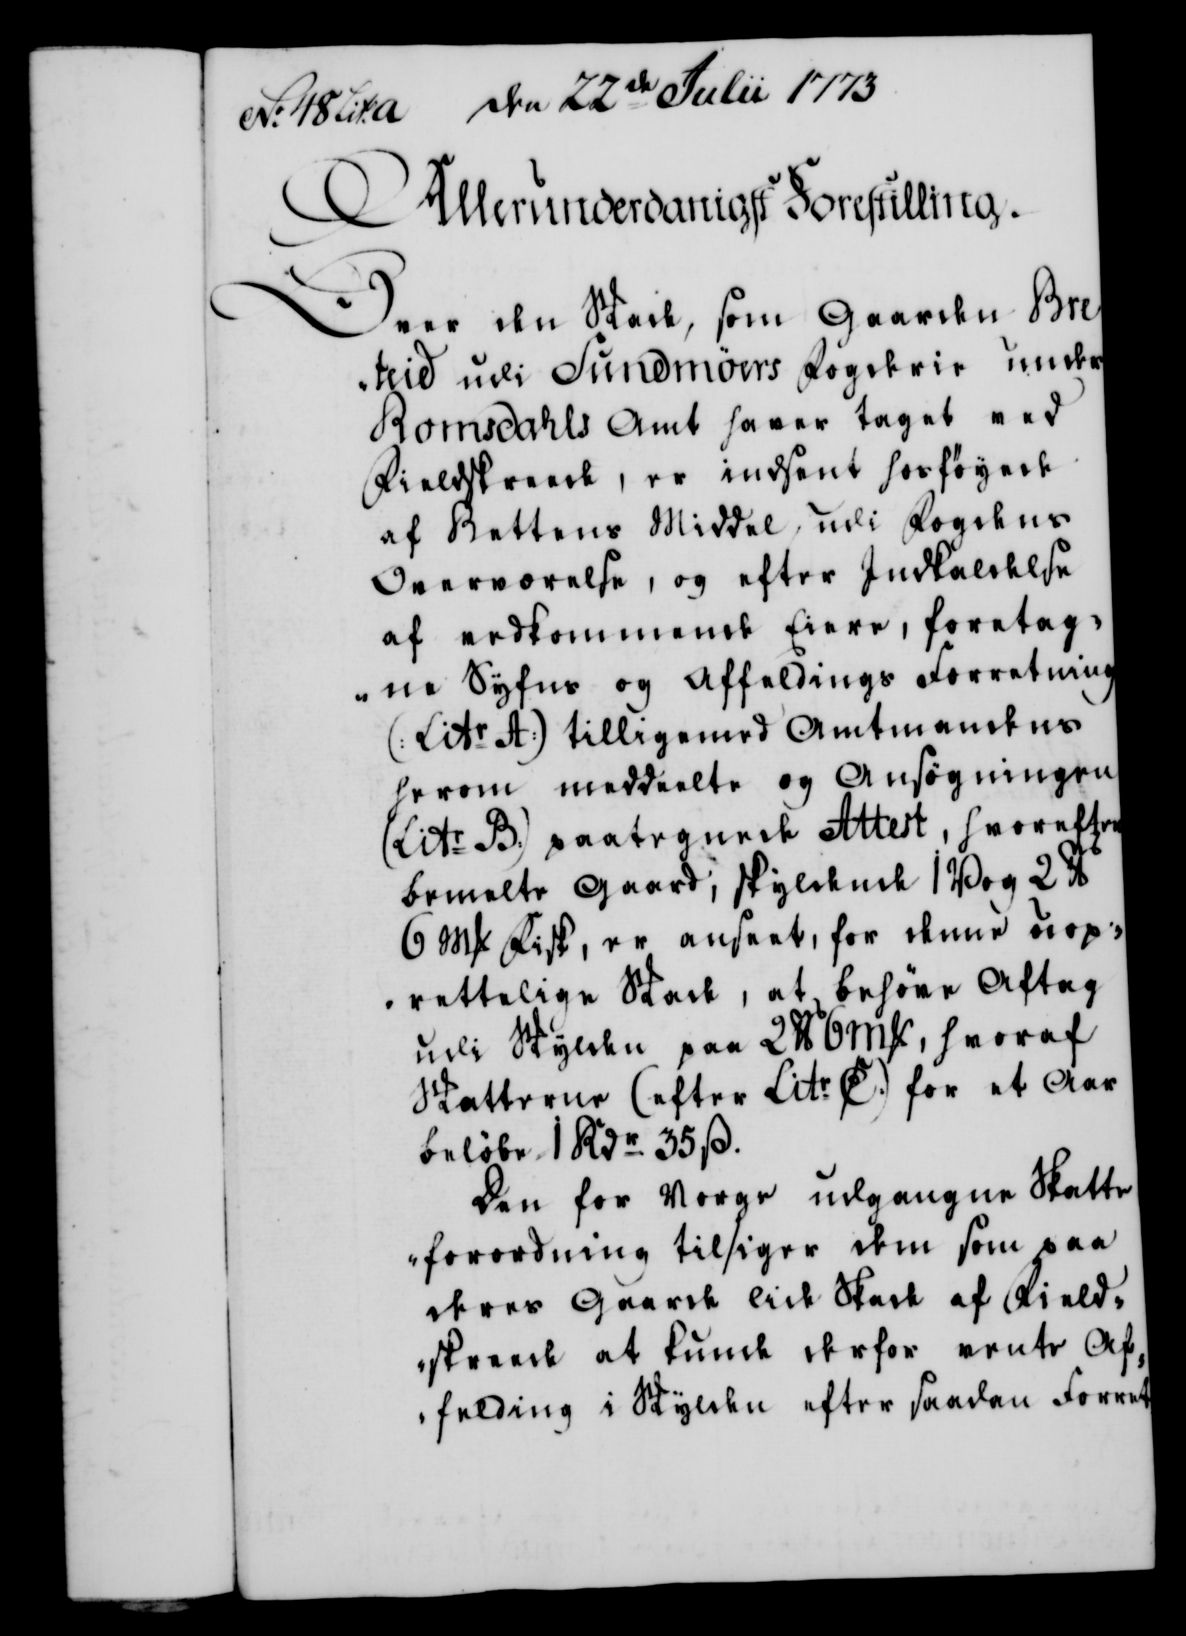 No: 48 Litr: a den 22de Julii 1773
Allerunderdanigst Forestilling.
Over den Skade, som Gaarden Bre
-teid udi Sundmöers Fogderie under
Romsdahls Amt haver taget ved
Fieldskreede, er indsent hosföyede
af Rettens Middel, udi Fogdens
Overværelse, og efter Indkaldelse
af vedkommende Eiere, foretag-
-ne Syfns og Affeldings Forretning
(: Litr A:) tilligemed Amtmandens
herom meddeelte og Ansögningen
(Litr B.) paategnede Attest, hvorefter
bemelte Gaard, skyldende 1 Vog 2 ℔
6 Mk Fisk, er anseet, for denne uop-
-rettelige Skade, at behöve Aftag
udi Skylden paa 2 ℔ 6 Mk, hvoraf
Skatterne (efter Litr C.) for et Aar
belöbe 1 Rdr 35 ß.
Den for Norge udgangne Skatte
-forordning tilsiger dem som paa
deres Gaarde lide Skade af Field-
-skreede at kunde derfor vente Af-
-felding i Skylden efter saadan Forret